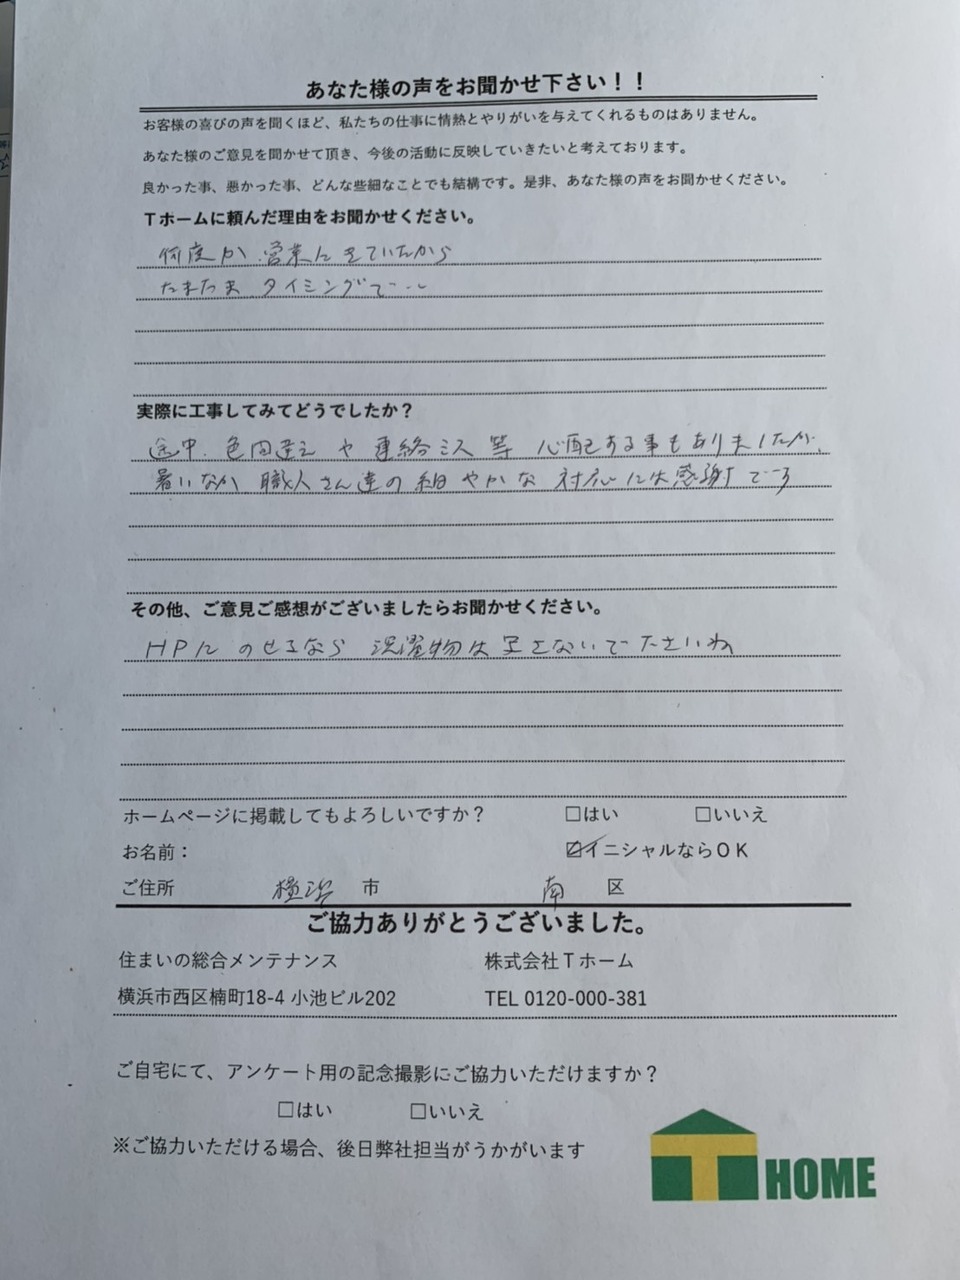 あなた様の声をお聞かせ下さい！！
お客様の喜びの声を聞くほど、私たちの仕事に情熱とやりがいを与えてくれるものはありません。
あなた様のご意見を聞かせて頂き、今後の活動に反映していきたいと考えております。
良かった事、悪かった事、どんな些細なことでも結構です。是非、あなた様の声をお聞かせください。
Ｔホームに頼んだ理由をお聞かせください。
何度か 営業に きていたから
たまたま タイミングで…
実際に工事してみてどうでしたか？
途中、色間違え や 連絡ミス 等 心配する事もありましたが、
暑いなか 職人さん達の 細やかな 対応には感謝です
その他、ご意見ご感想がございましたらお聞かせください。
HPに のせるなら 洗濯物は 写さないで下さいね
ホームページに掲載してもよろしいですか？ □はい □いいえ
お名前： ☑イニシャルならＯＫ
ご住所 横浜 市 南 区
ご協力ありがとうございました。
住まいの総合メンテナンス 株式会社Ｔホーム
横浜市西区楠町18-4 小池ビル202 TEL 0120-000-381
ご自宅にて、アンケート用の記念撮影にご協力いただけますか？
□はい □いいえ
※ご協力いただける場合、後日弊社担当がうかがいます
T HOME